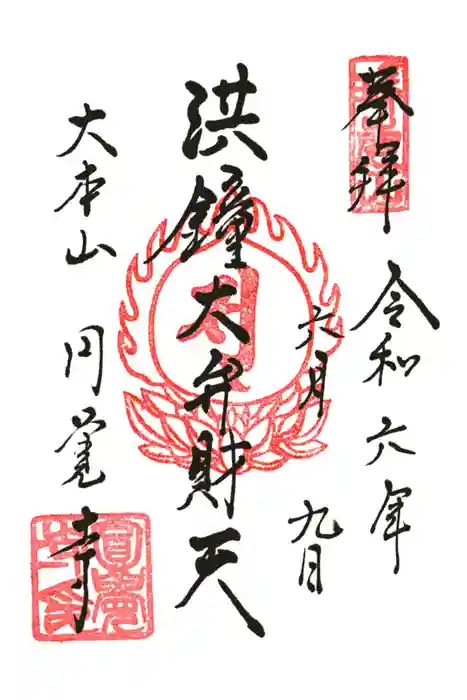 奉拝
令和六年
六月
九日
洪鐘大弁財天
大本山
円覚寺